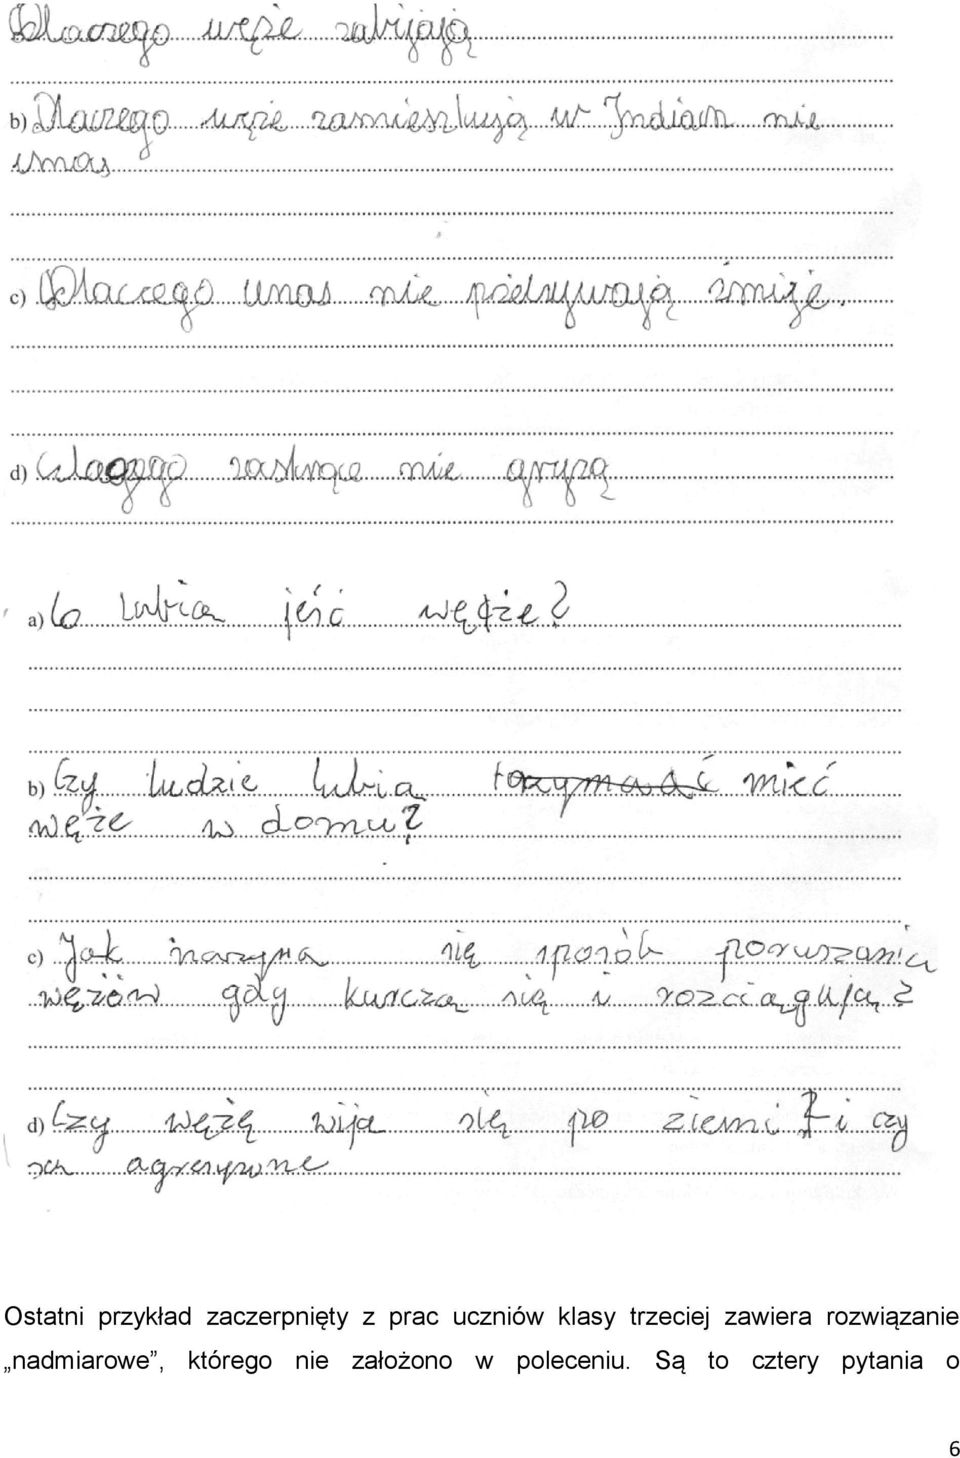 Dlaczego węże zabijają
b) Dlaczego węże zamieszkują w Indiach nie
unas
c) Dlaczego unas nie pżebywają żmiże.
d) dlaczego zaskrące nie gryzą
a) Co lubia jeść węże?
b) Czy ludzie lubia trzymać mieć
węże w domu?
c) Jak nazywa się sposób poruszania
wężów gdy kurczą się i rozciągują?
d) Czy wężę wija się po ziemi i czy
są agresywne
Ostatni przykład zaczerpnięty z prac uczniów klasy trzeciej zawiera rozwiązanie
„nadmiarowe, którego nie założono w poleceniu. Są to cztery pytania o
6